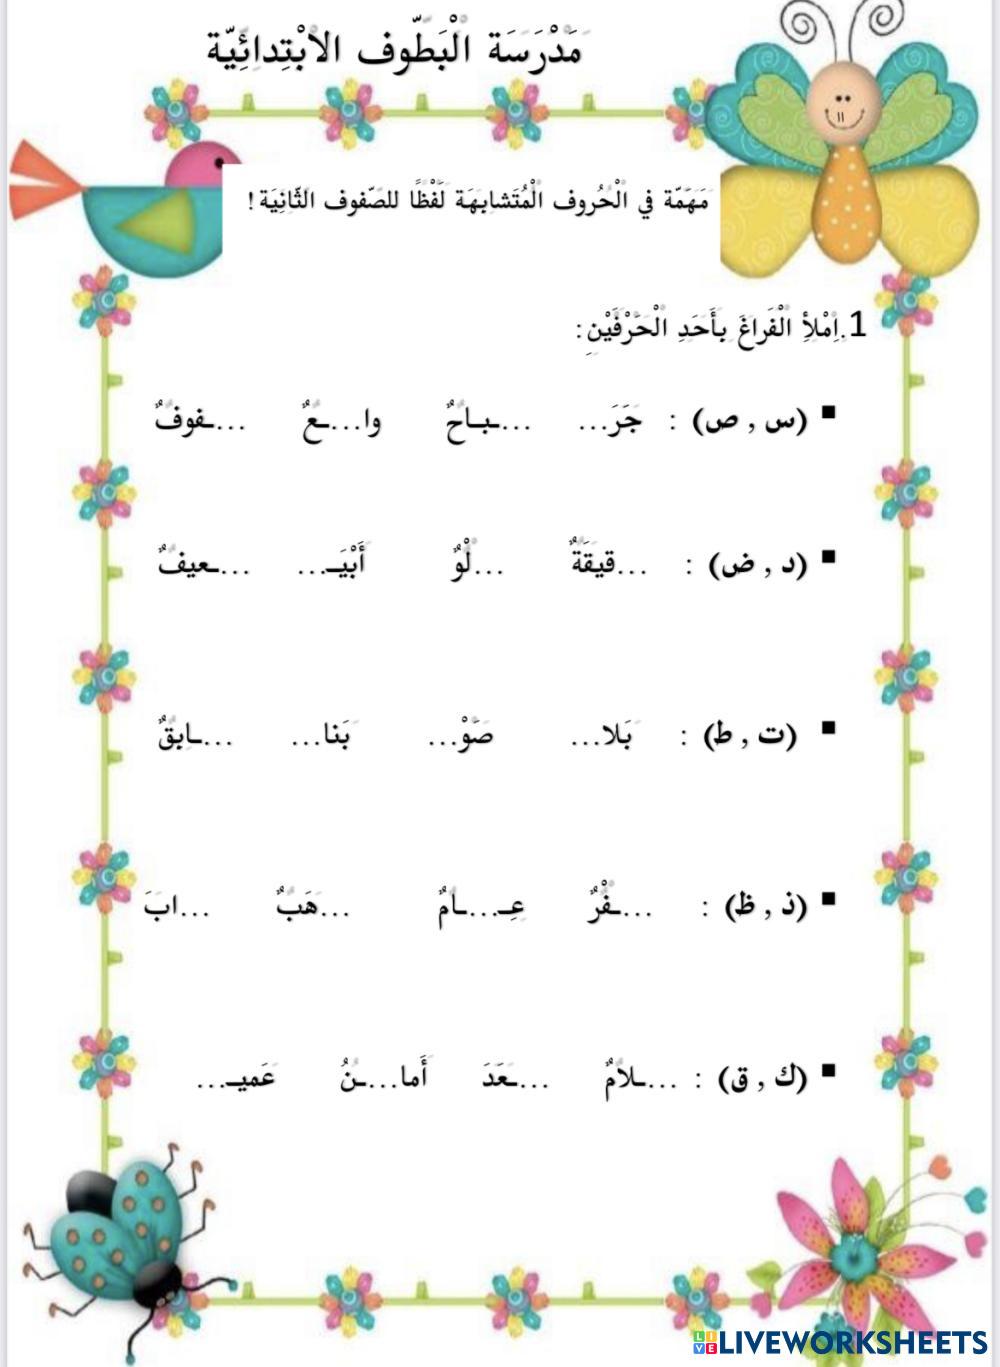 مَدْرَسَة الْبَطّوف الابْتِدائِيّة
مَهَمّة في الْحُروف الْمُتَشابِهَة لَفْظًا للصّفوف الثّانِيَة !
1.اِمْلأِ الْفَراغَ بِأَحَدِ الْحَرْفَيْنِ:
▪ (س , ص) : جَرَ... ...ـباحٌ وا...ـعٌ ...ـفوفٌ
▪ (د , ض) : ...قيقَةٌ ...لْوٌ أَبْيَـ... ...ـعيفٌ
▪ (ت , ط) : بَلا... صَوْ... بَنا... ...ـابِقٌ
▪ (ذ , ظ) : ...ـفْرٌ عِـ...ـامٌ ...هَبٌ ...ابَ
▪ (ك , ق) : ...ـلامٌ ...ـعَدَ أَما...ـنُ عَميـ...
LIVEWORKSHEETS